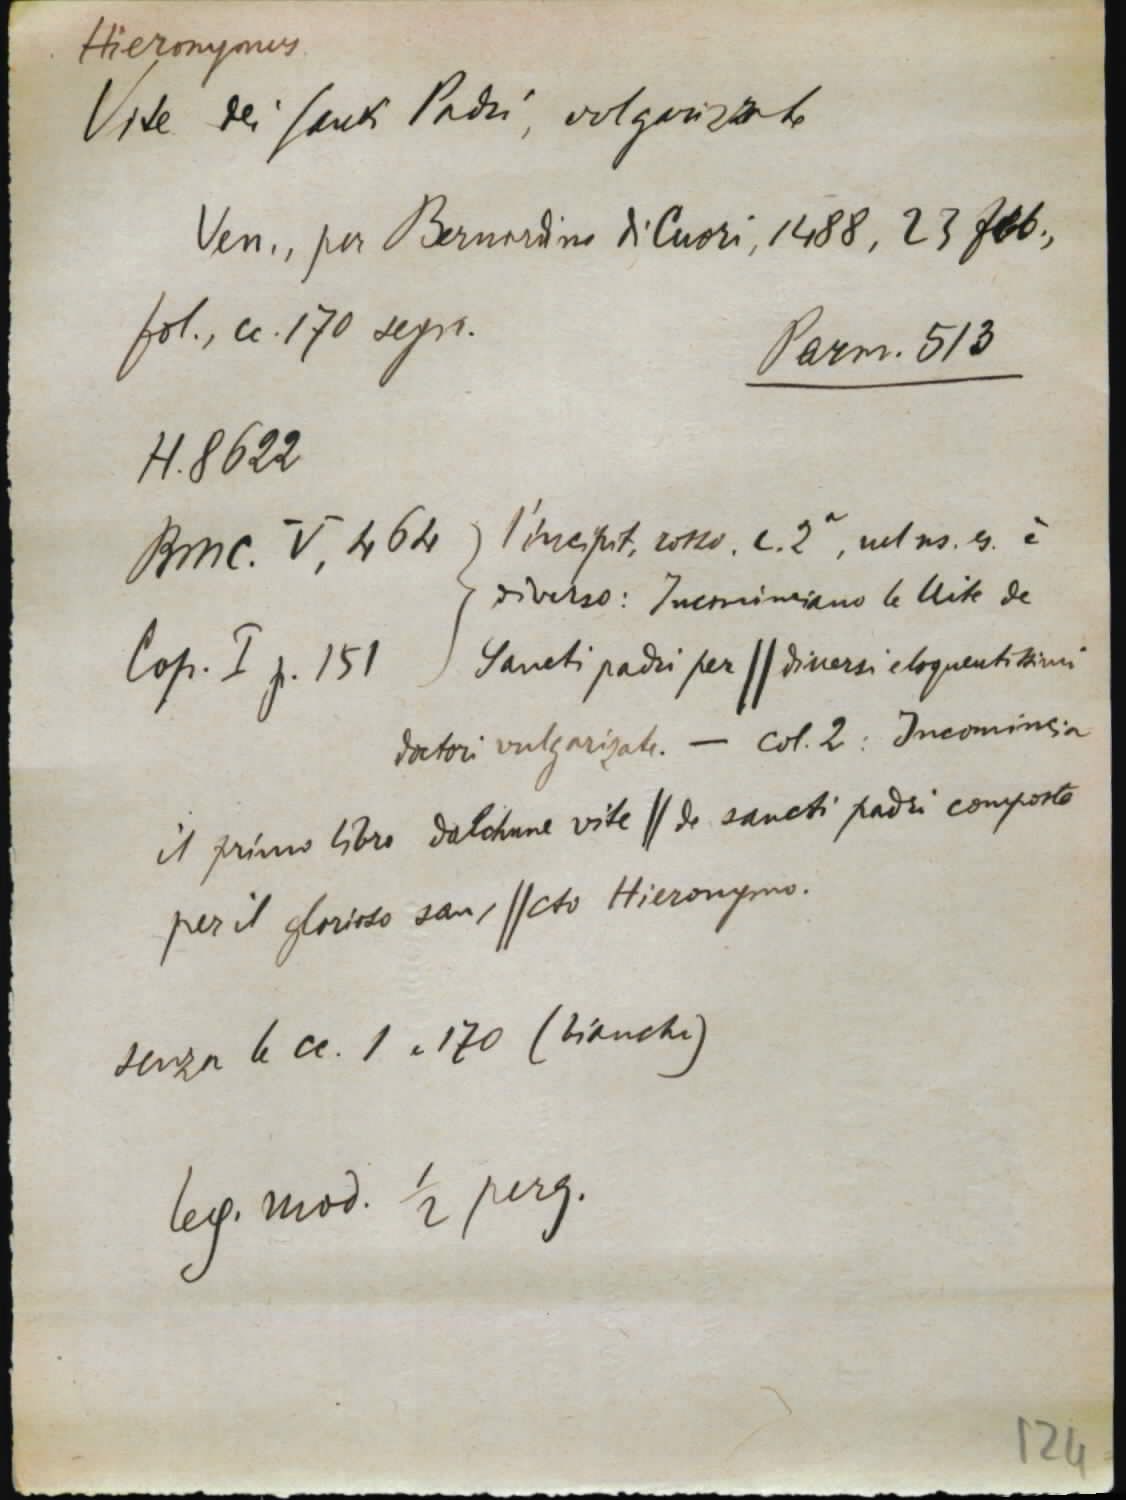 Hieronymus
Vite dei Santi Padri, volgarizzate
Ven., per Bernardino di Cuori, 1488, 23 feb.,
fol., cc. 170 segn.
Parm. 513
H. 8622
BMC. V, 464 } l'incipit, rosso, c. 2ª, nel ns. es. è
diverso: Incominciano le Uite de
Cop. I p. 151
Sancti padri per || diuersi eloquentissimi
doctori vulgarizate. — col. 2: Incomincia
il primo libro dalchune vite || de sancti padri composto
per il glorioso san, || cto Hieronymo.
senza le cc. 1 e 170 (bianche)
leg. mod. ½ perg.
124